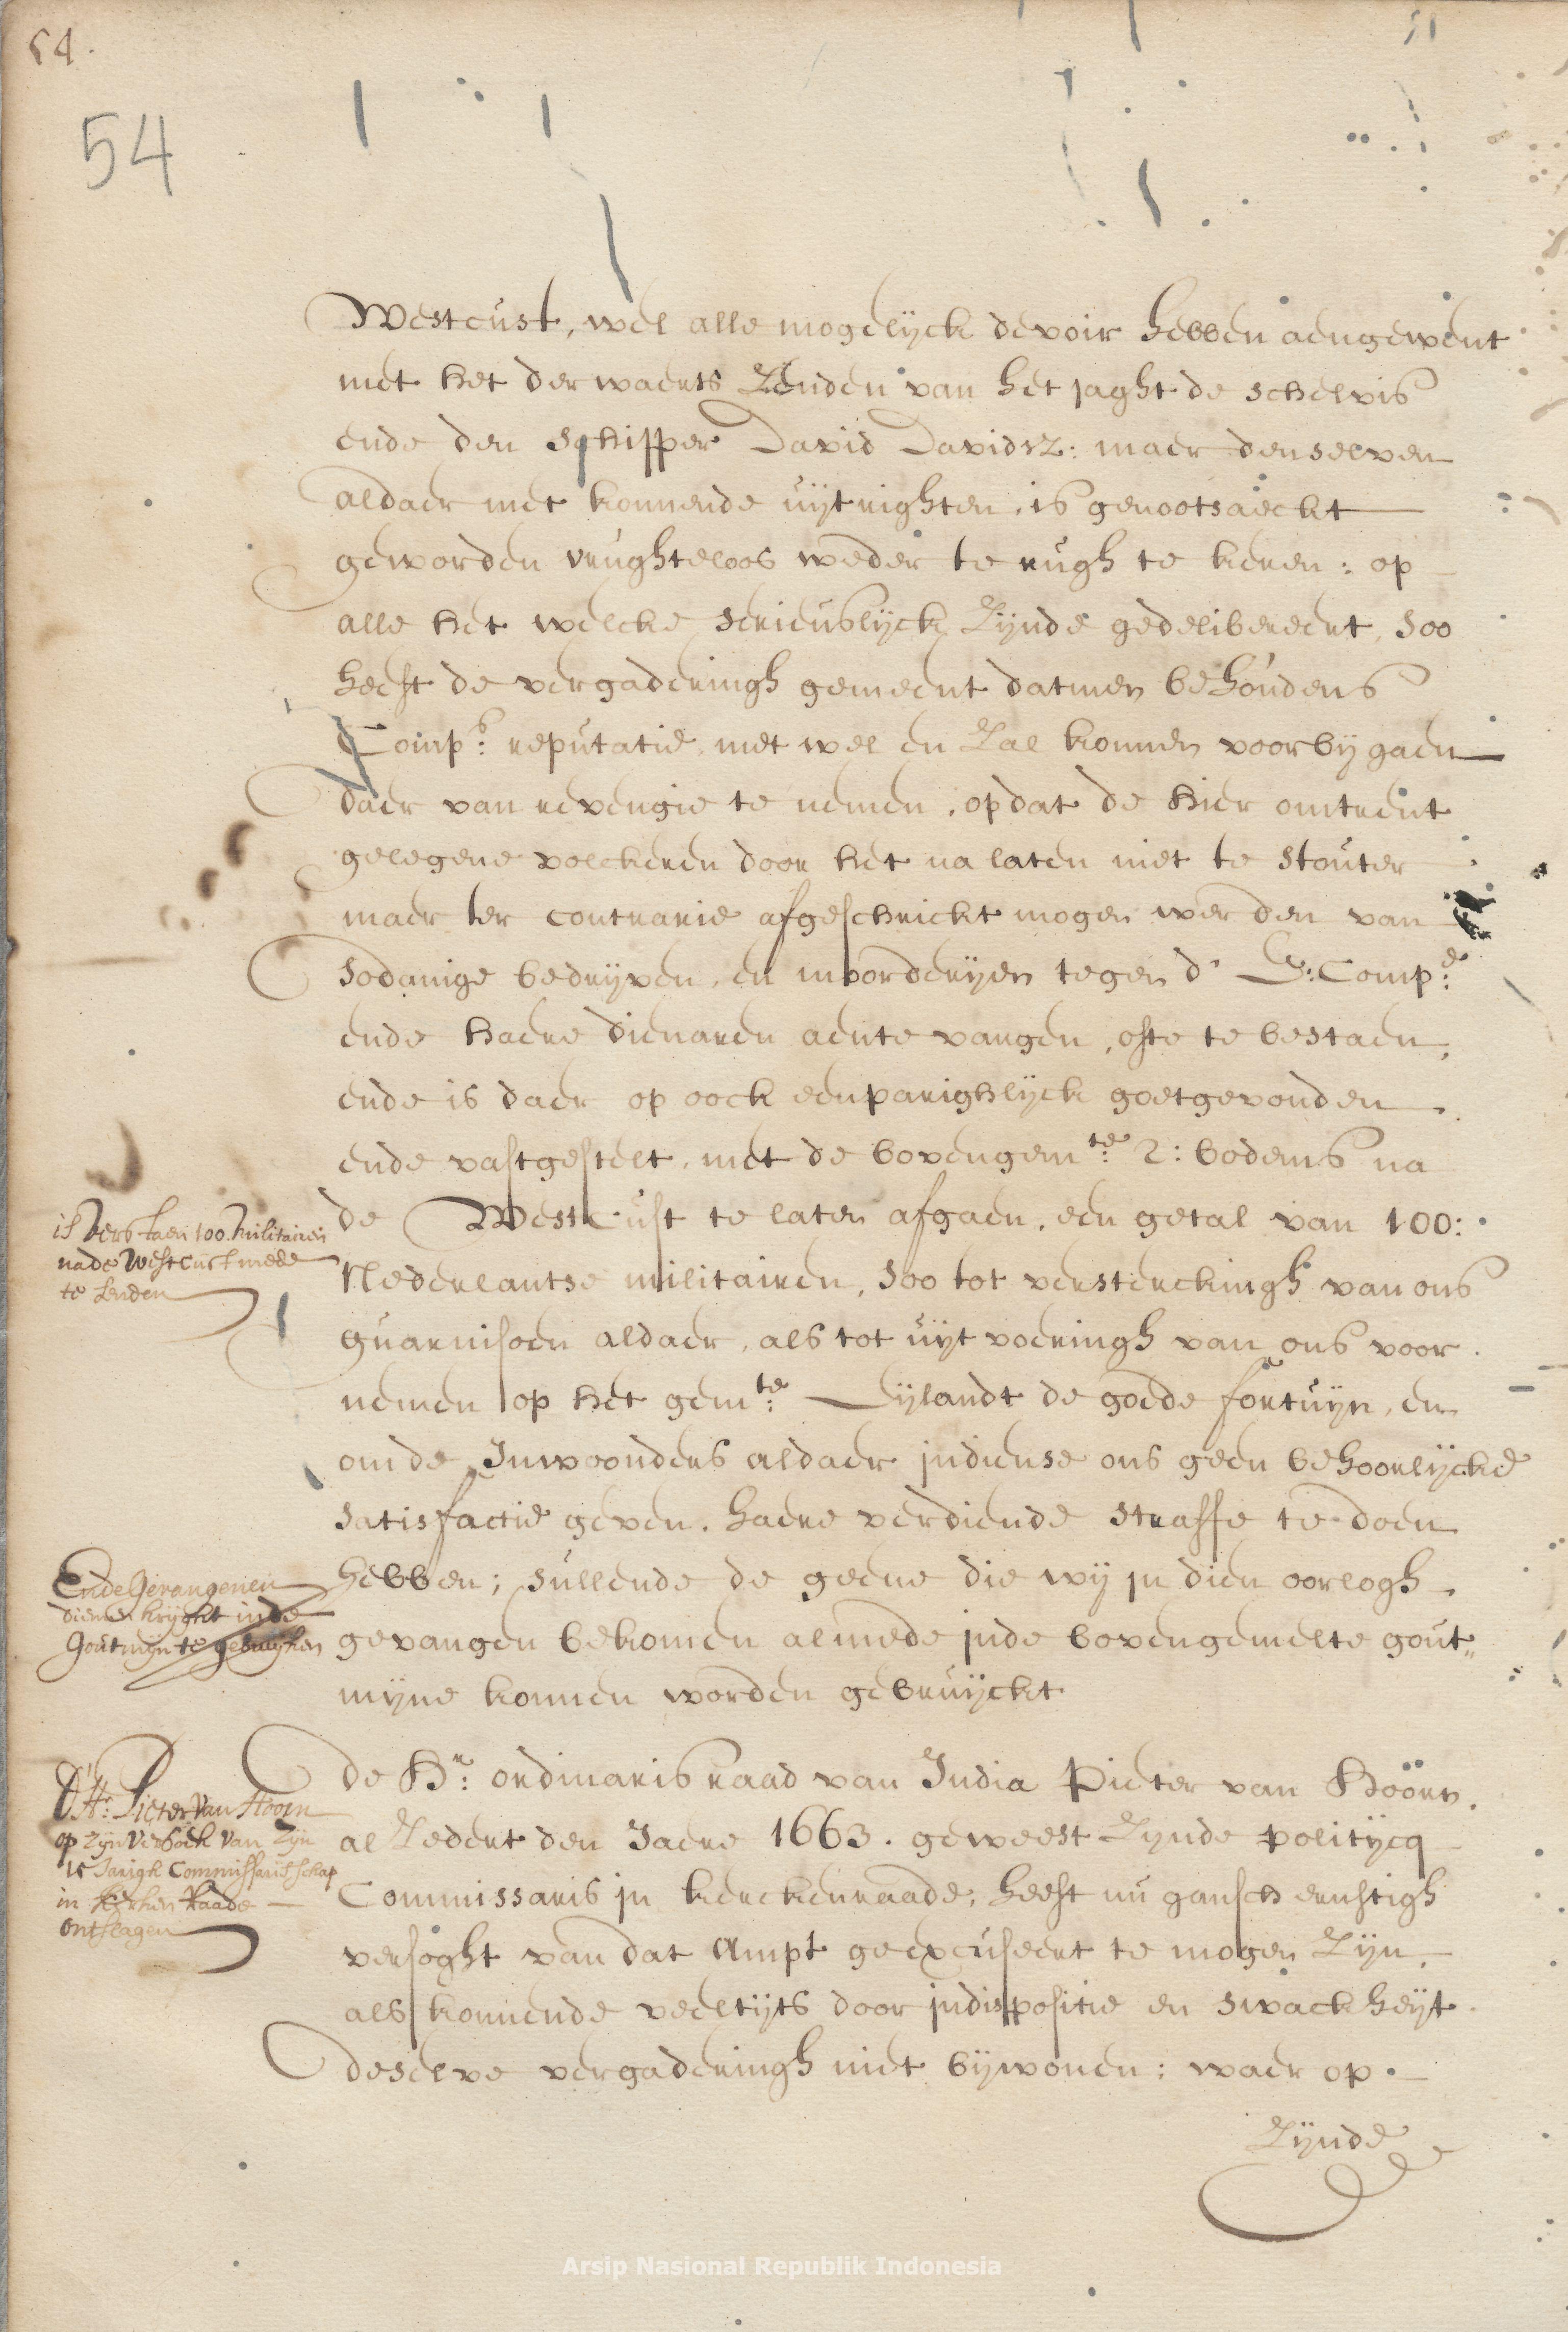 54.
54
Westcust, wel alle mogelijck devoir hebben aengewent
met het derwaerts zenden van het jaght de schelvis
ende den schipper David Davidsz: maer denselven
aldaer niet konnende uijtrighten, is genootsaeckt
geworden vrughteloos weder te rugh te keren: op
alle het welcke serieuslijck zijnde gedelibereert, soo
heeft de vergaderingh gemeent datmen behoudens
Comps: reputatie, niet wel en zal konnen voorbij gaen
daer van revengie te nemen, op dat de hier omtrent
gelegene volckeren door het na laten niet te stouter
maer ter contrarie afgeschrickt mogen werden van
sodanige bedrijven, en moorderijen tegen d' E: Compe:
ende haere dienaren aen te vangen, ofte te bestaen,
ende is daer op oock eenparighlijck goetgevonden
ende vastgestelt, met de bovengemte: 2: bodems na
de Westcust te laten afgaen, een getal van 100:
Nederlantse militairen, soo tot versterckingh van ons
guarnisoen aldaer, als tot uijt voeringh van ons voor
nemen op het gemte: Eijlandt de goede fortuijn, en
om de Inwoonders aldaer indiense ons geen behoorlijcke
satisfactie geven, haere verdiende straffe te doen
hebben; sullende de geene die wij in dien oorlogh
gevangen bekomen almede inde bovengemelte gout„
mijne konnen worden gebruijckt
is verstaen 100. militairen
na de Westcust mede
te senden
Ende Gevangenen
diemen krijght inde
Goutmijn te gebruijken
de Hr: ordinaris raad van India Pieter van Hoorn,
al zedert den Jaere 1663. geweest zijnde politijcq
Commissaris in kerckenraade, heeft nu gansch ernstigh
versoght van dat Ampt geexcuseert te mogen zijn,
als konnende veeltijts door indispositie en swackheijt
deselve vergaderingh niet bijwonen: waer op
zijnde
D'Hr: Pieter Van Hoorn
op zijn versoek van zijn
Jarigh Commissarisschap
in Kerken Raade
ontslagen
Arsip Nasional Republik Indonesia